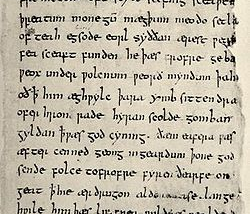 oft scyld scefing sceaþen
þreatum monegū mægþum meodo setla
of teah egsode eorl syððan ærest ƿear
fea sceaft funden he þæs frofre geba
ƿeox under ƿolcnum ƿeorð myndum þah
oð þ him æghƿylc þara ymb sittendra
ofer hron rade hyran scolde gomban
gyldan þæs god cyning. ðæm eafera ƿæs
æfter cenned geong ingeardum þone god
sende folce tofrofre fyren ðearfe on
geat þ hie ær drugon aldor ase. lange
hƿile him þæs lif frea